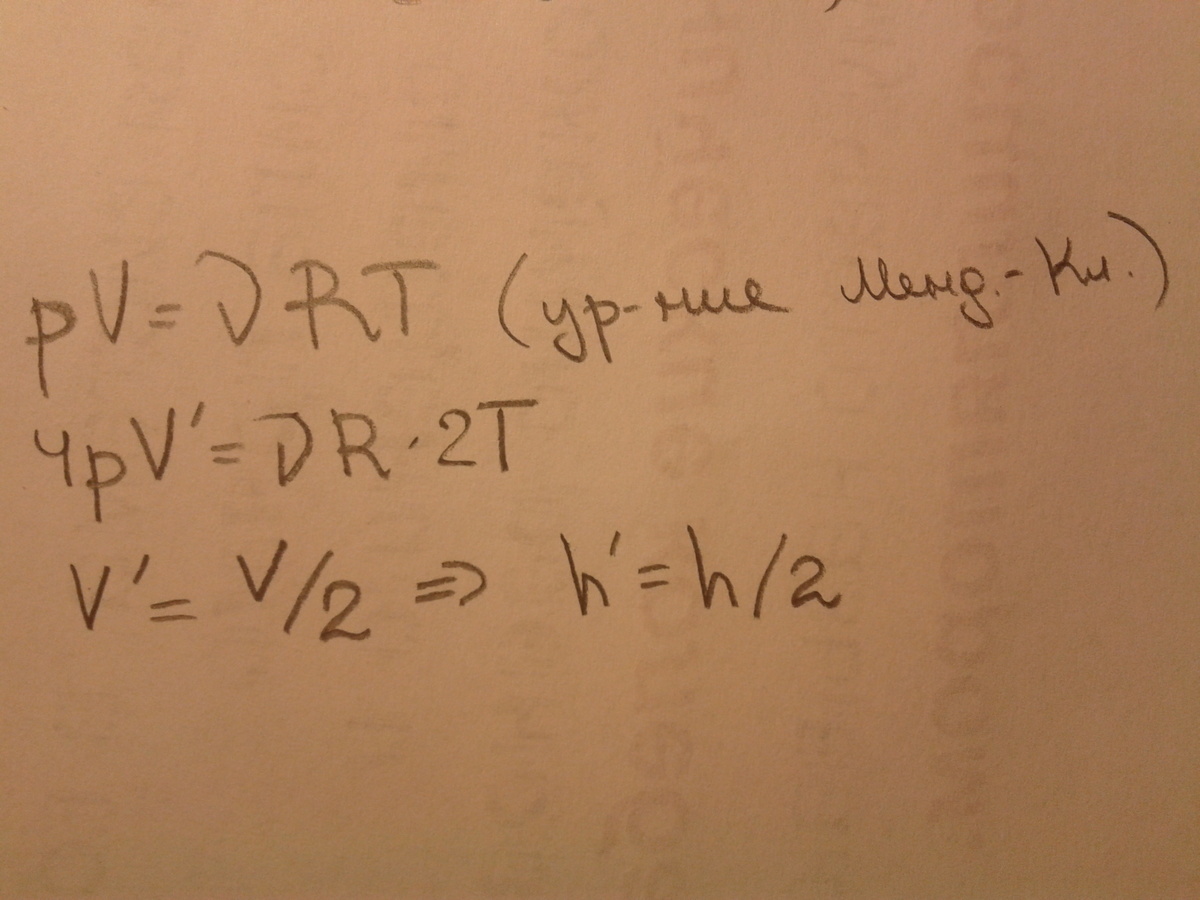 pV = νRT (ур-ние Менд.-Кл.)
4pV' = νR·2T
V' = V/2 ⇒ h' = h/2